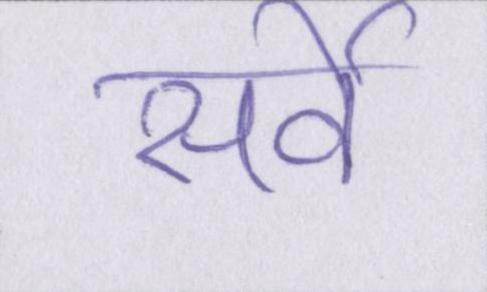 सर्वे